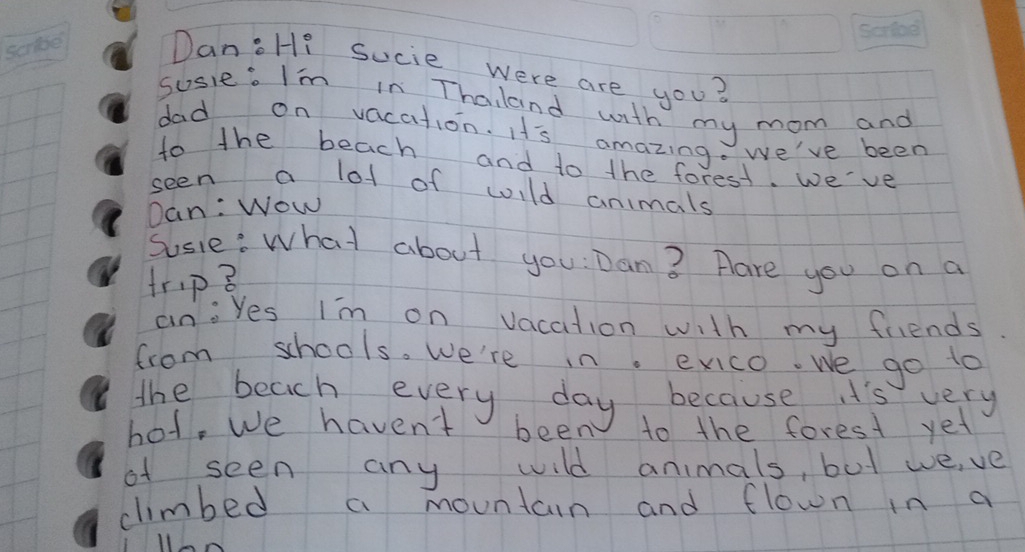 Scribe
Scribe
Dan: Hi Sucie Were are you?
Susie: I'm in Thailand with my mom and
dad on vacation. It's amazing. We've been
to the beach and to the forest. We've
seen a lot of wild animals
Dan: Wow
Susie: What about you: Dan? Aare you on a
trip?
an: Yes I'm on vacation with my friends.
from schools. We're in . exico. We go to
the beach every day because it's very
hot. We haven't been to the forest yet
ot seen any wild animals, but we,ve
climbed a mountain and flown in a